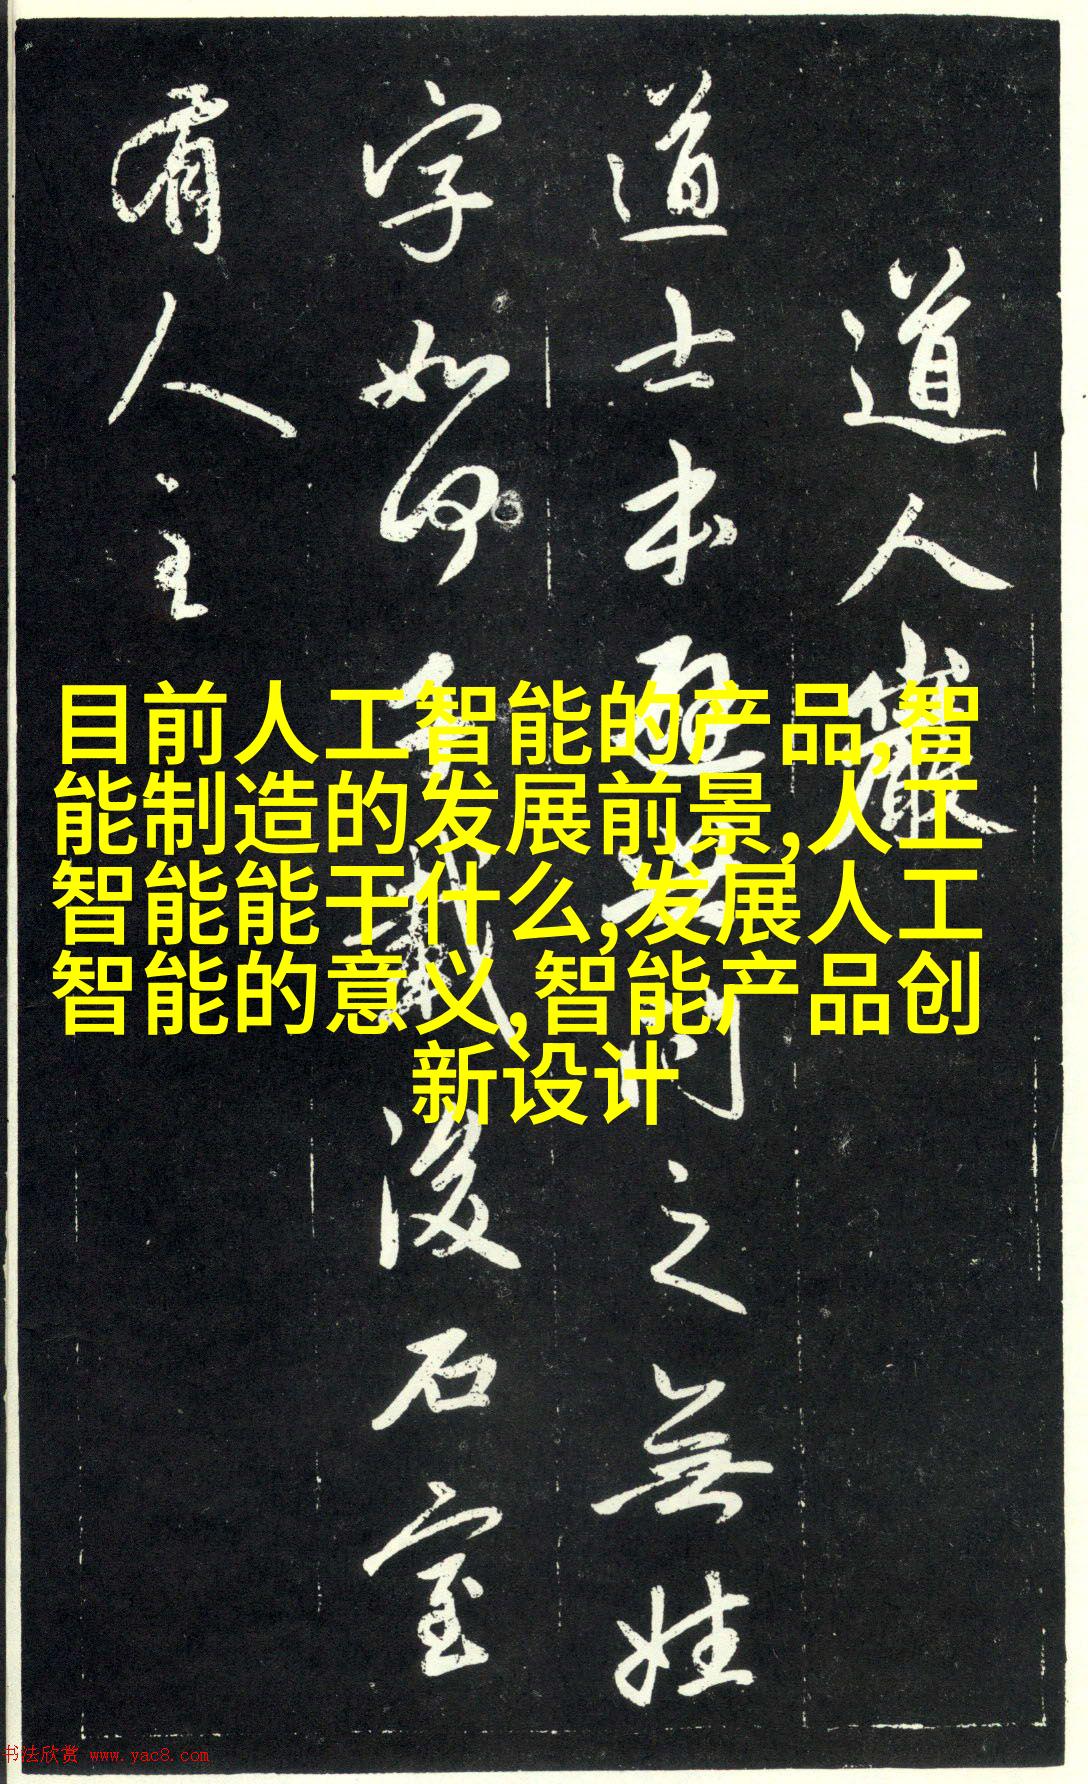 道人巖
道士本之無姓
字如何千載後石室
有人主
目前人工智能的产品,智
能制造的发展前景,人工
智能能干什么,发展人工
智能的意义,智能产品创
新设计
书法欣赏 www.yac8.com